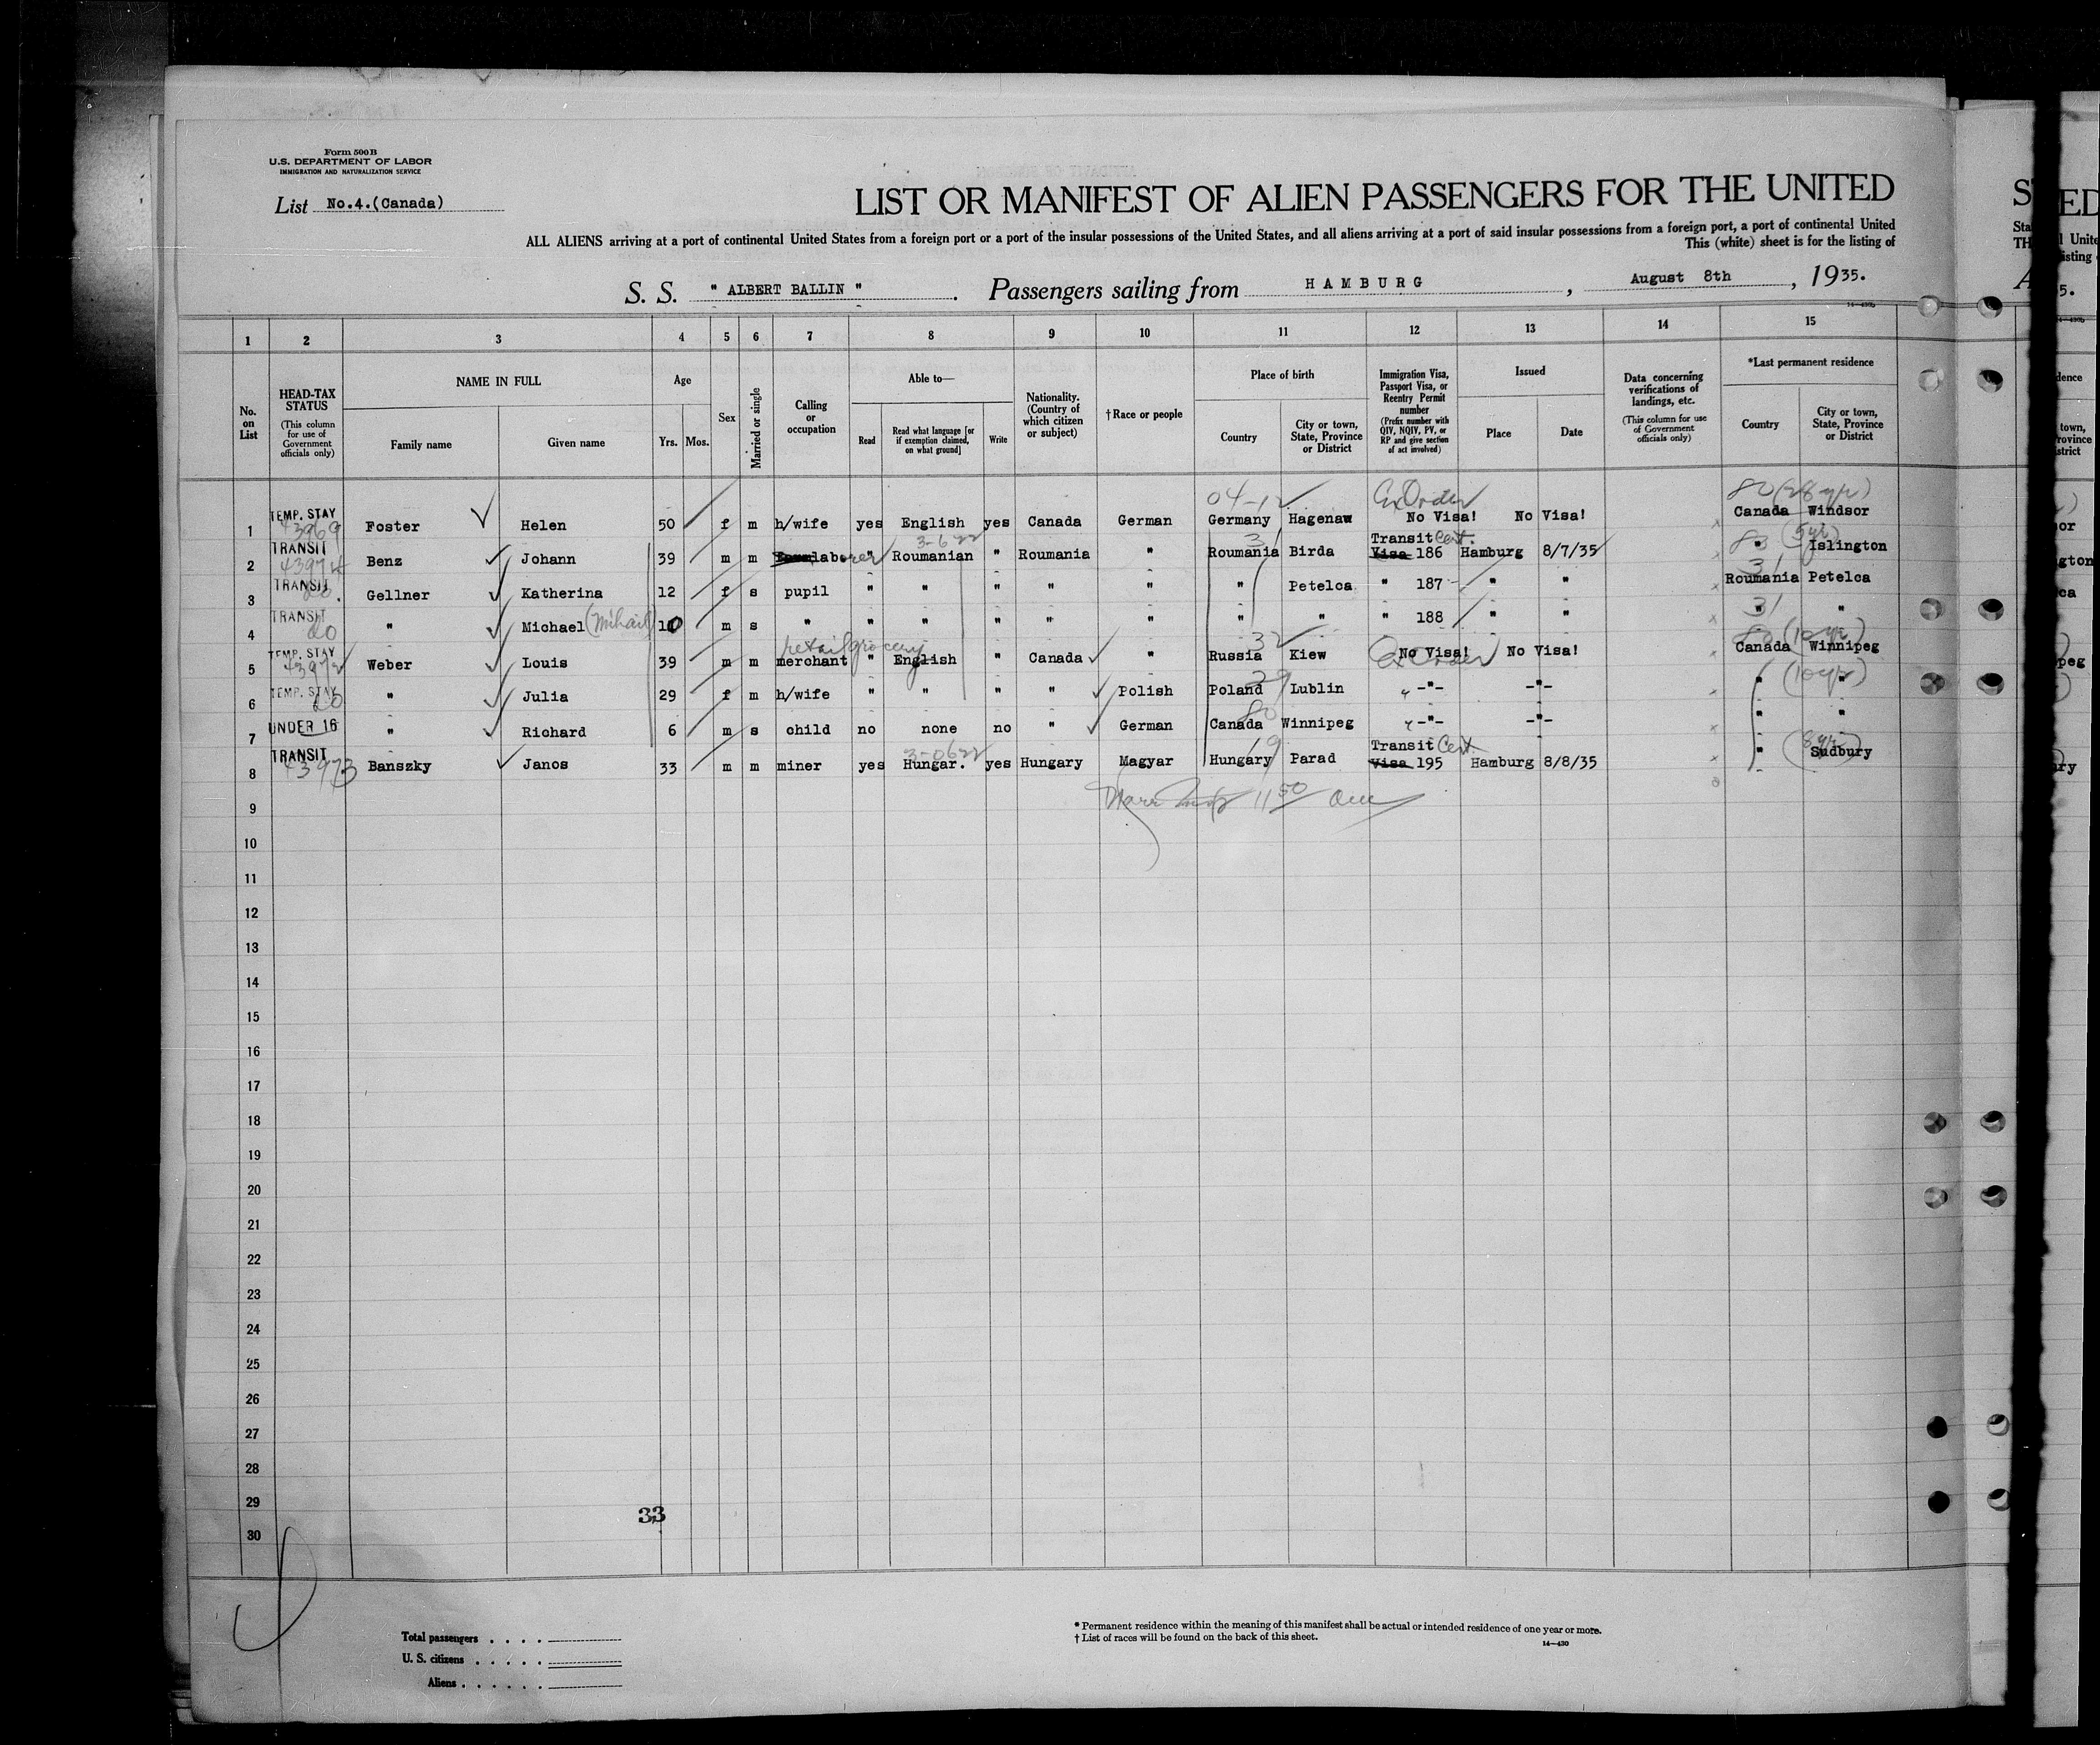 Form 500 B
U.S. DEPARTMENT OF LABOR
IMMIGRATION AND NATURALIZATION SERVICE
List No.4.(Canada)
LIST OR MANIFEST OF ALIEN PASSENGERS FOR THE UNITED
ALL ALIENS arriving at a port of continental United States from a foreign port or a port of the insular possessions of the United States, and all aliens arriving at a port of said insular possessions from a foreign port, a port of continental United
This (white) sheet is for the listing of
S. S. " ALBERT BALLIN " . Passengers sailing from HAMBURG , August 8th , 1935.
14—430b
1 2 3 4 5 6 7 8 9 10 11 12 13 14 15
No. on List
HEAD-TAX STATUS (This column for use of Government officials only)
NAME IN FULL Family name Given name
Age Yrs. Mos.
Sex
Married or single
Calling or occupation
Able to— Read Read what language [or if exemption claimed, on what ground] Write
Nationality. (Country of which citizen or subject)
†Race or people
Place of birth Country City or town, State, Province or District
Immigration Visa, Passport Visa, or Reentry Permit number (Prefix number with QIV, NQIV, PV, or RP and give section of act involved)
Issued Place Date
Data concerning verifications of landings, etc. (This column for use of Government officials only)
*Last permanent residence Country City or town, State, Province or District
04-12 Ex Order 80 (28 yr)
1 TEMP. STAY 43969 Foster Helen 50 f m h/wife yes English yes Canada German Germany Hagenaw No Visa! No Visa! Canada Windsor
3-622 31 Transit Cert. 83 (5 yr)
2 TRANSIT 43974 Benz Johann 39 m m laborer " Roumanian " Roumania " Roumania Birda Visa 186 Hamburg 8/7/35 " Islington
31
3 TRANSIT do. Gellner Katherina 12 f s pupil " " " " " " Petelca " 187 " " Roumania Petelca
31
4 TRANSIT do " Michael (Mihail) 10 m s " " " " " " " " " 188 " " " "
retail grocery 32 Ex Order 80 (10 yr)
5 TEMP. STAY 43972 Weber Louis 39 m m merchant " English " Canada " Russia Kiew No Visa! No Visa! Canada Winnipeg
29 (10 yr)
6 TEMP. STAY do " Julia 29 f m h/wife " " " " Polish Poland Lublin -"- -"- " "
80
7 UNDER 16 " Richard 6 m s child no none no " German Canada Winnipeg -"- -"- " "
3-0622 19 Transit Cert. (8 yr)
8 TRANSIT 43973 Banszky Janos 33 m m miner yes Hungar. yes Hungary Magyar Hungary Parad Visa 195 Hamburg 8/8/35 " Sudbury
9
10
11
12
13
14
15
16
17
18
19
20
21
22
23
24
25
26
27
28
29
33
30
Total passengers . . . .
U. S. citizens . . . . .
Aliens . . . . . .
* Permanent residence within the meaning of this manifest shall be actual or intended residence of one year or more.
† List of races will be found on the back of this sheet.
14—430